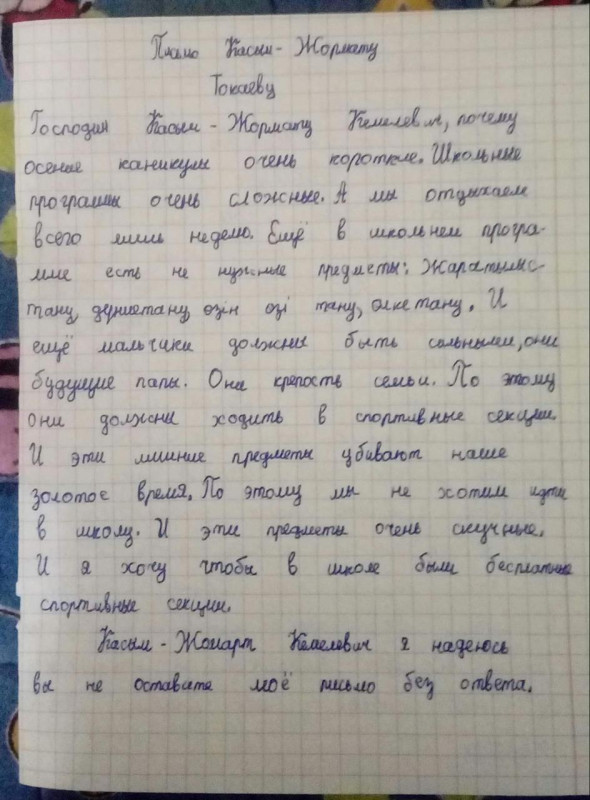 Письмо Касым-Жормату
Токаеву
Господин Касым-Жормату Кемелевич, почему
осение каникулы очень короткие. Школьные
программы очень сложные. А мы отдыхаем
всего лишь неделю. Ещё в школьнем програ-
мме есть не нужные предметы: Жаратылыс-
тану, дүниетану, өзін өзі тану, өлкетану. И
ещё мальчики должны быть сильными, они
будущие папы. Они крепость семьи. По этому
они должны ходить в спортивные секции.
И эти лишние предметы убивают наше
золотое время. По этому мы не хотим идти
в школу. И эти предметы очень скучные.
И я хочу чтобы в школе были бесплатные
спортивные секции.
Касым-Жомарт Кемелевич я надеюсь
вы не оставите моё письмо без ответа.